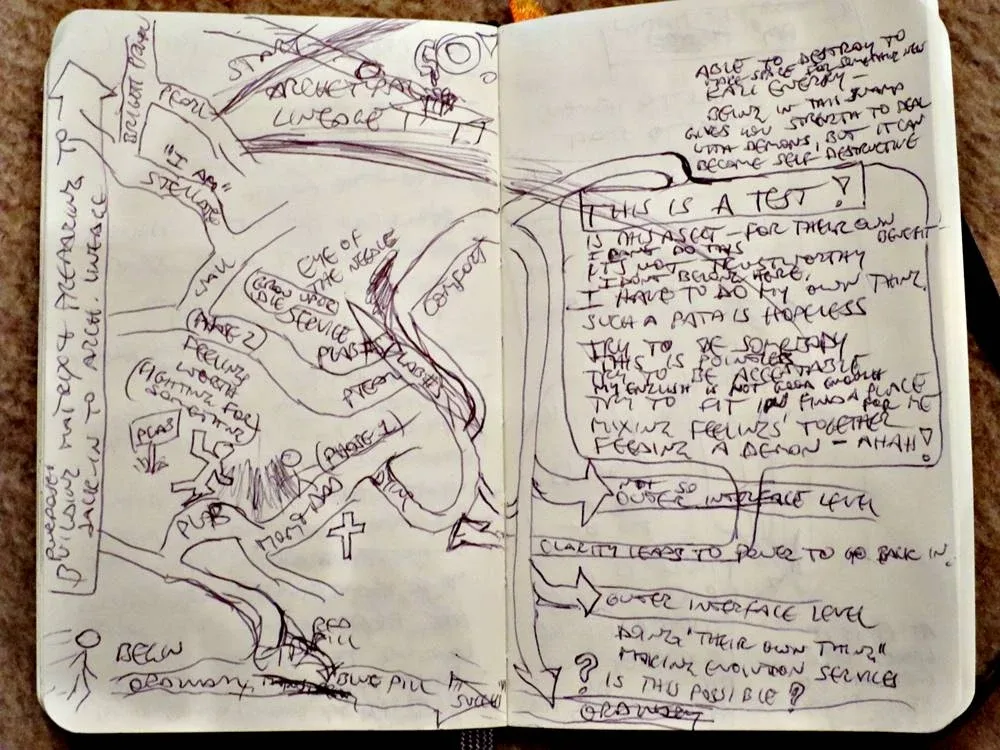 START
ARCHETYPAL
LINEAGE
BRIGHT
PEARL
"I AM"
STELLATE
EYE OF
THE NEEDLE
GROW UP OR
DIE SERVICE
COMFORT
PHASE 2
FEELING
WORTH
FIGHTING FOR
SOMETHING
(PHASE-1)
MOM & DAD
DYING
BUILDING MATRIX & PREPARING TO
JACK-IN TO ARCH. LINEAGE
RED
PILL
BEGIN
ORDINARY
BLUE PILL
ABLE TO DESTROY TO
MAKE SPACE FOR SOMETHING NEW
KALI ENERGY -
BEING IN THIS SWAMP
GIVES YOU STRENGTH TO DEAL
WITH DEMONS, BUT IT CAN
BECOME SELF DESTRUCTIVE
THIS IS A TEST!
IS THIS ASCET - FOR THEIR OWN BENEFIT -
I DON'T DO THIS
IT'S NOT TRUSTWORTHY
I DON'T BELONG HERE.
I HAVE TO DO MY OWN THING
SUCH A PATH IS HOPELESS
TRY TO BE SOMEBODY
THIS IS POINTLESS
TRY TO BE ACCEPTABLE
MY ENGLISH IS NOT GOOD ENOUGH
TRY TO FIT IN FIND A PLACE FOR ME
MIXING FEELINGS TOGETHER
FEEDING A DEMON - AHAH!
NOT SO
OUTER INTERFACE LEVEL
CLARITY LEADS TO POWER TO GO BACK IN.
OUTER INTERFACE LEVEL
DOING "THEIR OWN THING"
MAKING EVOLUTION SERVICES
? IS THIS POSSIBLE?
ORDINARY